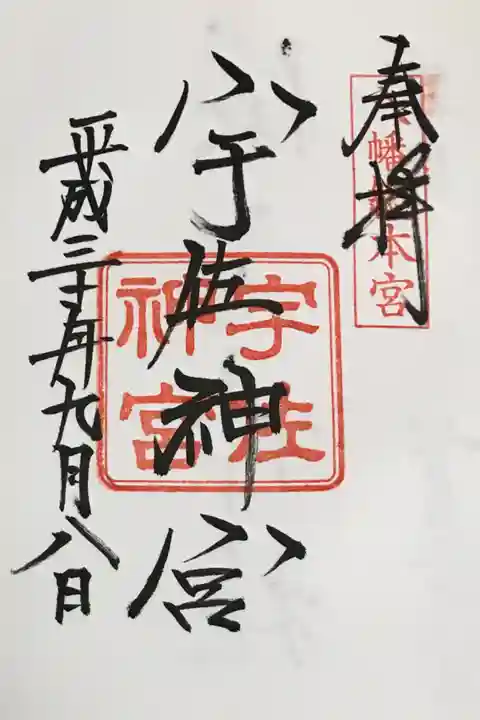 奉拝
八幡総本宮
宇佐神宮
宇佐
神宮
平成三十年九月八日